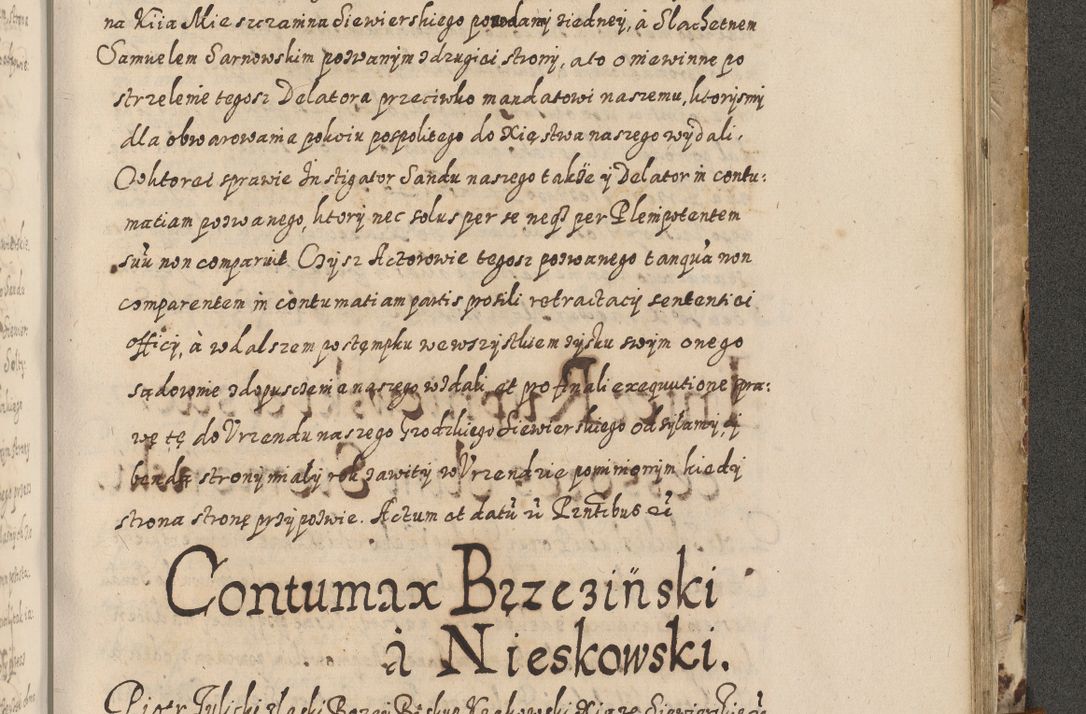 na Xiia Mieszczanina Siewierskiego powodamy ziedney, à Slachetnem
Samuelem Sarnowskim pozwanÿm zdrugiei strony, a to o niewinne po
strzelenie tegosz Delatora przeciwko mandatowi naszemu, ktorysmy
dla obwarowania pokoiu pospolitego do Xięstwa naszego wydali.
O ktorei sprawie Instigator Sandu naszego także ÿ Delator in contu:
matiam pozwanego, ktorÿ nec solus per se neqʒ per Plenipotentem
suū non comparuit Czÿsz Actorowie tegosz pozwanego tanquā non
comparentem in contumatiam partis prosili retractacÿ sententiei
officÿ, à wdalszem postęmpku wewszystkiem zÿsku swÿm onego
sądownie zdopuszczenia naszego wzdali et pro finali exequutione spra:
wę tę do Vrzendu naszego Grodzkiego Siewierskiego odsyłamÿ, ÿ
bendą stronÿ miałÿ rok zawitÿ w Vrzendzie pomnionÿm kiedÿ
strona stronę przÿpozwie. Actum et datū ū Pzntibus ū
Contumax Brzeziński
à Nieskowski.
Piotr Tylicki z łaski Bozey Biskup Krakowski Xiąze Siewierskie